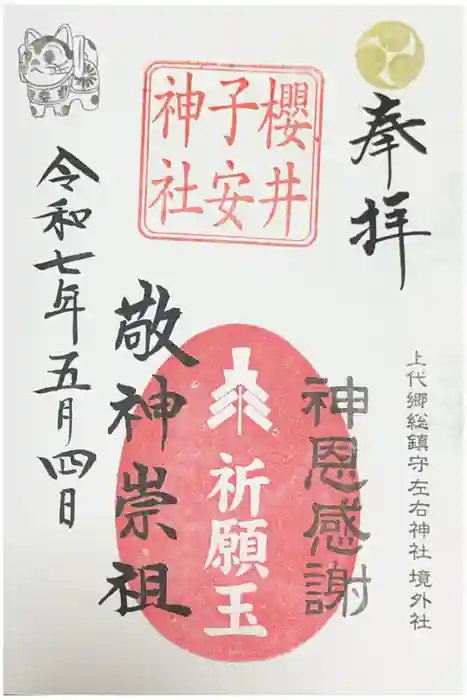 奉拝
上代郷総鎮守 左右神社 境外社
櫻井
子安
神社
神恩感謝
祈願玉
敬神崇祖
令和七年五月四日